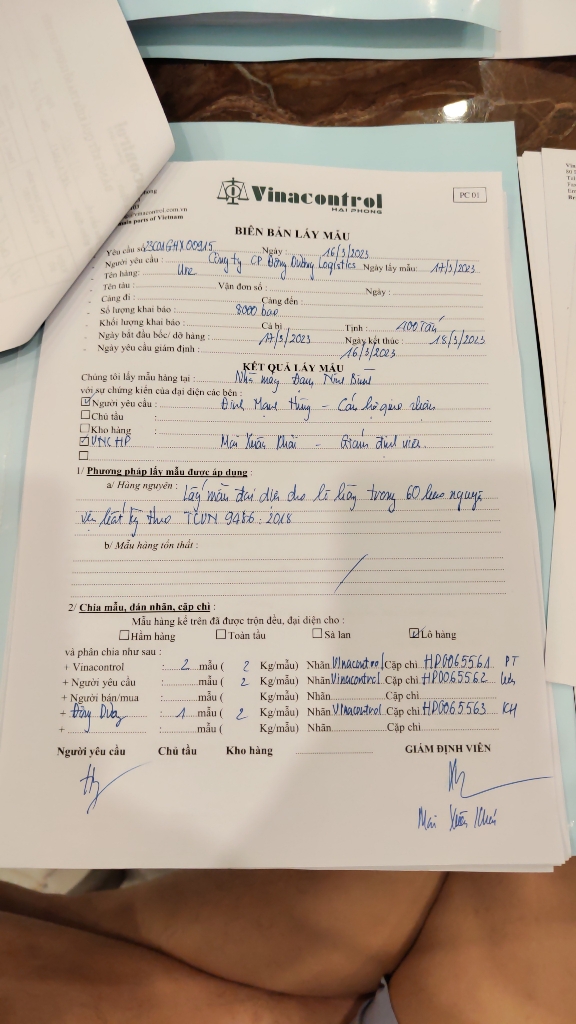 Vinacontrol
HAI PHONG
PC 01
vinacontrol.com.vn
main ports of Vietnam
BIÊN BẢN LẤY MẪU
Yêu cầu số 23C01GHX00915 Ngày : 16/3/2023
Người yêu cầu : Công ty CP Đông Dương Logistics Ngày lấy mẫu: 17/3/2023
Tên hàng: Ure
Tên tàu : Vận đơn số : Ngày :
Cảng đi : Cảng đến :
Số lượng khai báo : 8000 bao
Khối lượng khai báo : Cả bì Tịnh : 400 Tấn
Ngày bắt đầu bốc/ dỡ hàng : 17/3/2023 Ngày kết thúc : 18/3/2023
Ngày yêu cầu giám định : 16/3/2023
KẾT QUẢ LẤY MẪU
Chúng tôi lấy mẫu hàng tại : Nhà máy Đạm Ninh Bình
với sự chứng kiến của đại diện các bên :
Người yêu cầu : Đinh Mạnh Hùng - Cán bộ giao nhận
Chủ tầu :
Kho hàng :
VNC HP Mai Xuân Khải - Giám định viên
1/ Phương pháp lấy mẫu được áp dụng :
a/ Hàng nguyên : Lấy mẫu đại diện cho lô hàng trong 60 bao nguyên
vẹn bất kỳ theo TCVN 9486:2018
b/ Mẫu hàng tổn thất :
2/ Chia mẫu, dán nhãn, cặp chì :
Mẫu hàng kể trên đã được trộn đều, đại diện cho :
Hầm hàng Toàn tầu Sà lan Lô hàng
và phân chia như sau :
+ Vinacontrol : 2 mẫu ( 2 Kg/mẫu) Nhãn Vinacontrol Cặp chì HP0065561 PT
+ Người yêu cầu : mẫu ( 2 Kg/mẫu) Nhãn Vinacontrol Cặp chì HP0065562 lưu
+ Người bán/mua : mẫu ( Kg/mẫu) Nhãn Cặp chì
+ Đông Dương : 1 mẫu ( 2 Kg/mẫu) Nhãn Vinacontrol Cặp chì HP0065563 KH
+ : mẫu ( Kg/mẫu) Nhãn Cặp chì
Người yêu cầu Chủ tầu Kho hàng GIÁM ĐỊNH VIÊN
Mai Xuân Khải